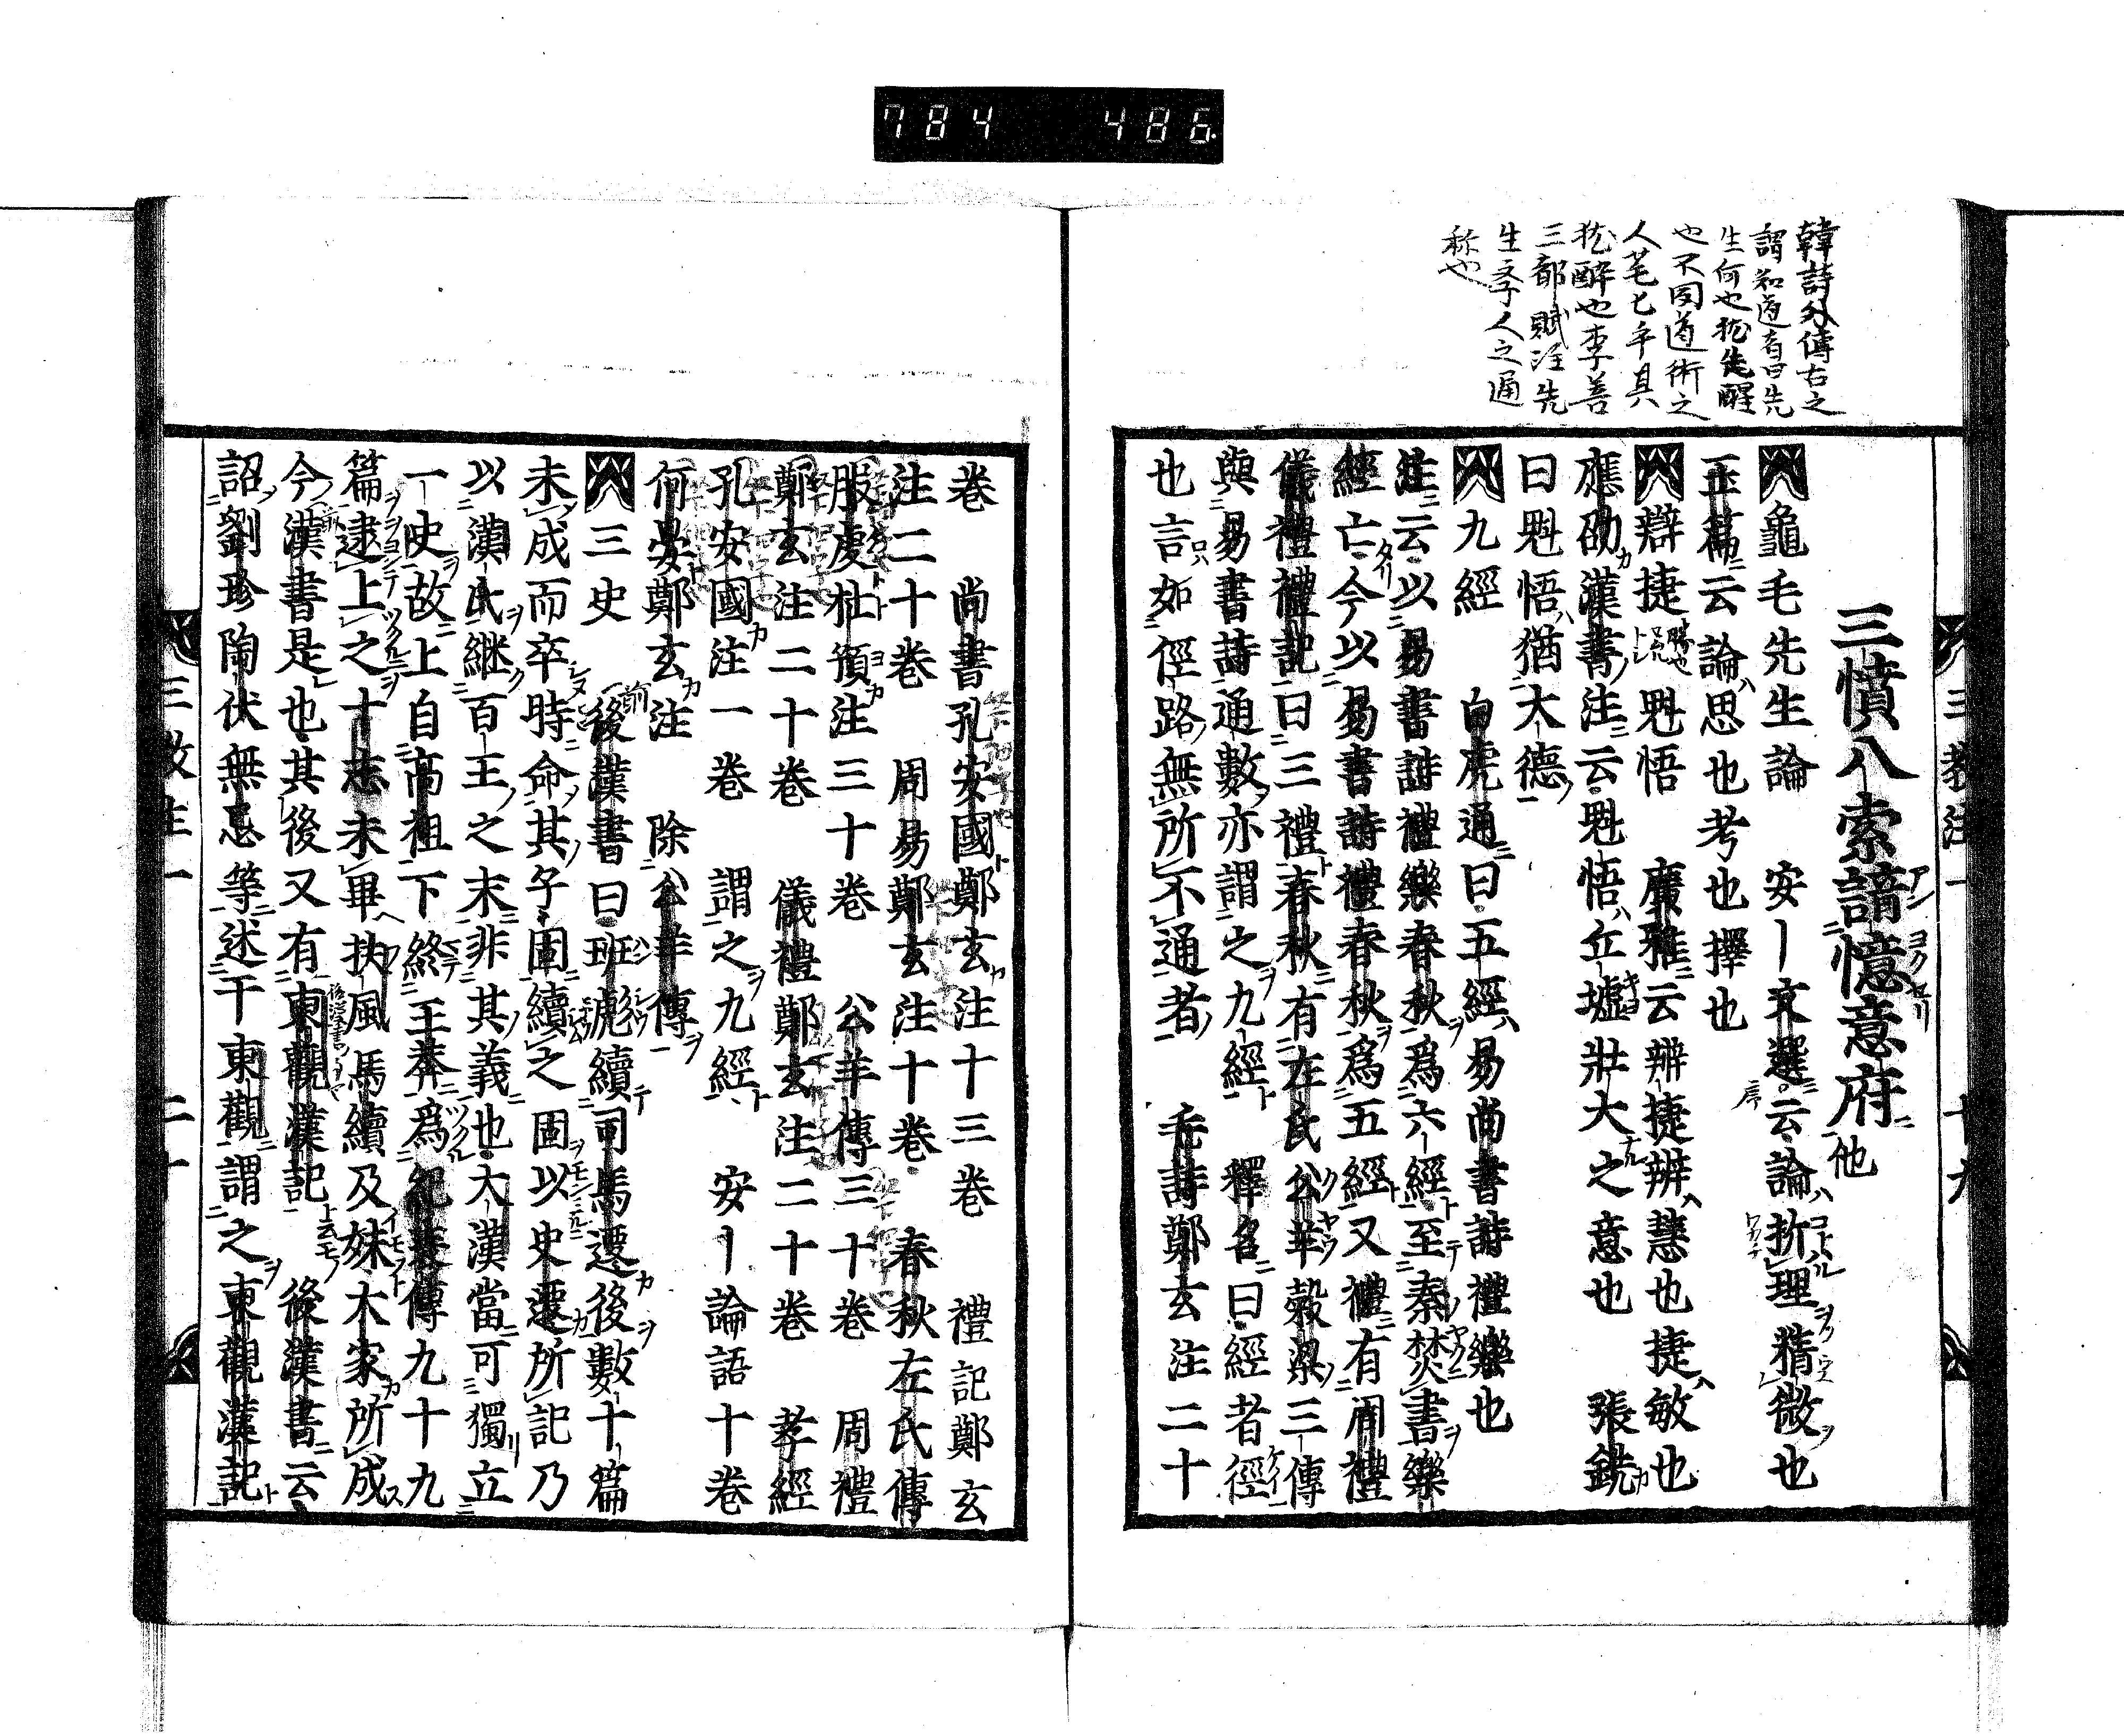 784 486
韓詩外傳古之
謂知道者曰先
生何也猶先醒
也不因道術之
人
猶醉也李善
三都賦注先
生學人之通
稱也
三教注一 十九
三憤八索諳憶意府他
龜毛先生論 安｜文選云論折理精微也
玉篇云論思也考也擇也
辯捷 魁悟 廣雅云辨捷辨慧也捷敏也
應劭漢書注云魁悟丘墟壯大之意也 張銑
曰魁悟猶大德
九經 白虎通曰五經易尚書詩禮樂也
注云以易書詩禮樂春秋爲六經至秦焚書樂
經亡今以易書詩禮春秋爲五經又禮有周禮
儀禮禮記曰三禮春秋有左氏公羊穀梁三傳
與易書詩通數亦謂之九經 釋名曰經者徑
也言如徑路無所不通者 毛詩鄭玄注二十
卷 尚書孔安國鄭玄注十三卷 禮記鄭玄
注二十卷 周易鄭玄注十卷 春秋左氏傳
服虔杜預注三十卷 公羊傳三十卷 周禮
鄭玄注二十卷 儀禮鄭玄注二十卷 孝經
孔安國注一卷 謂之九經 安｜論語十卷
何晏鄭玄注 除公羊傳
三史 後漢書曰班彪續司馬遷後數十篇
未成而卒時命其子固續之固以史遷所記乃
以漢氏繼百王之末非其義也大漢當可獨立
一史故上自高祖下終王莽爲紀表傳九十九
篇逮上之十志未畢扶風馬續及妹大家所成
今漢書是也其後又有東觀漢記 後漢書云
詔劉珍陶伏無忌等述于東觀謂之東觀漢記
三教注一 二十